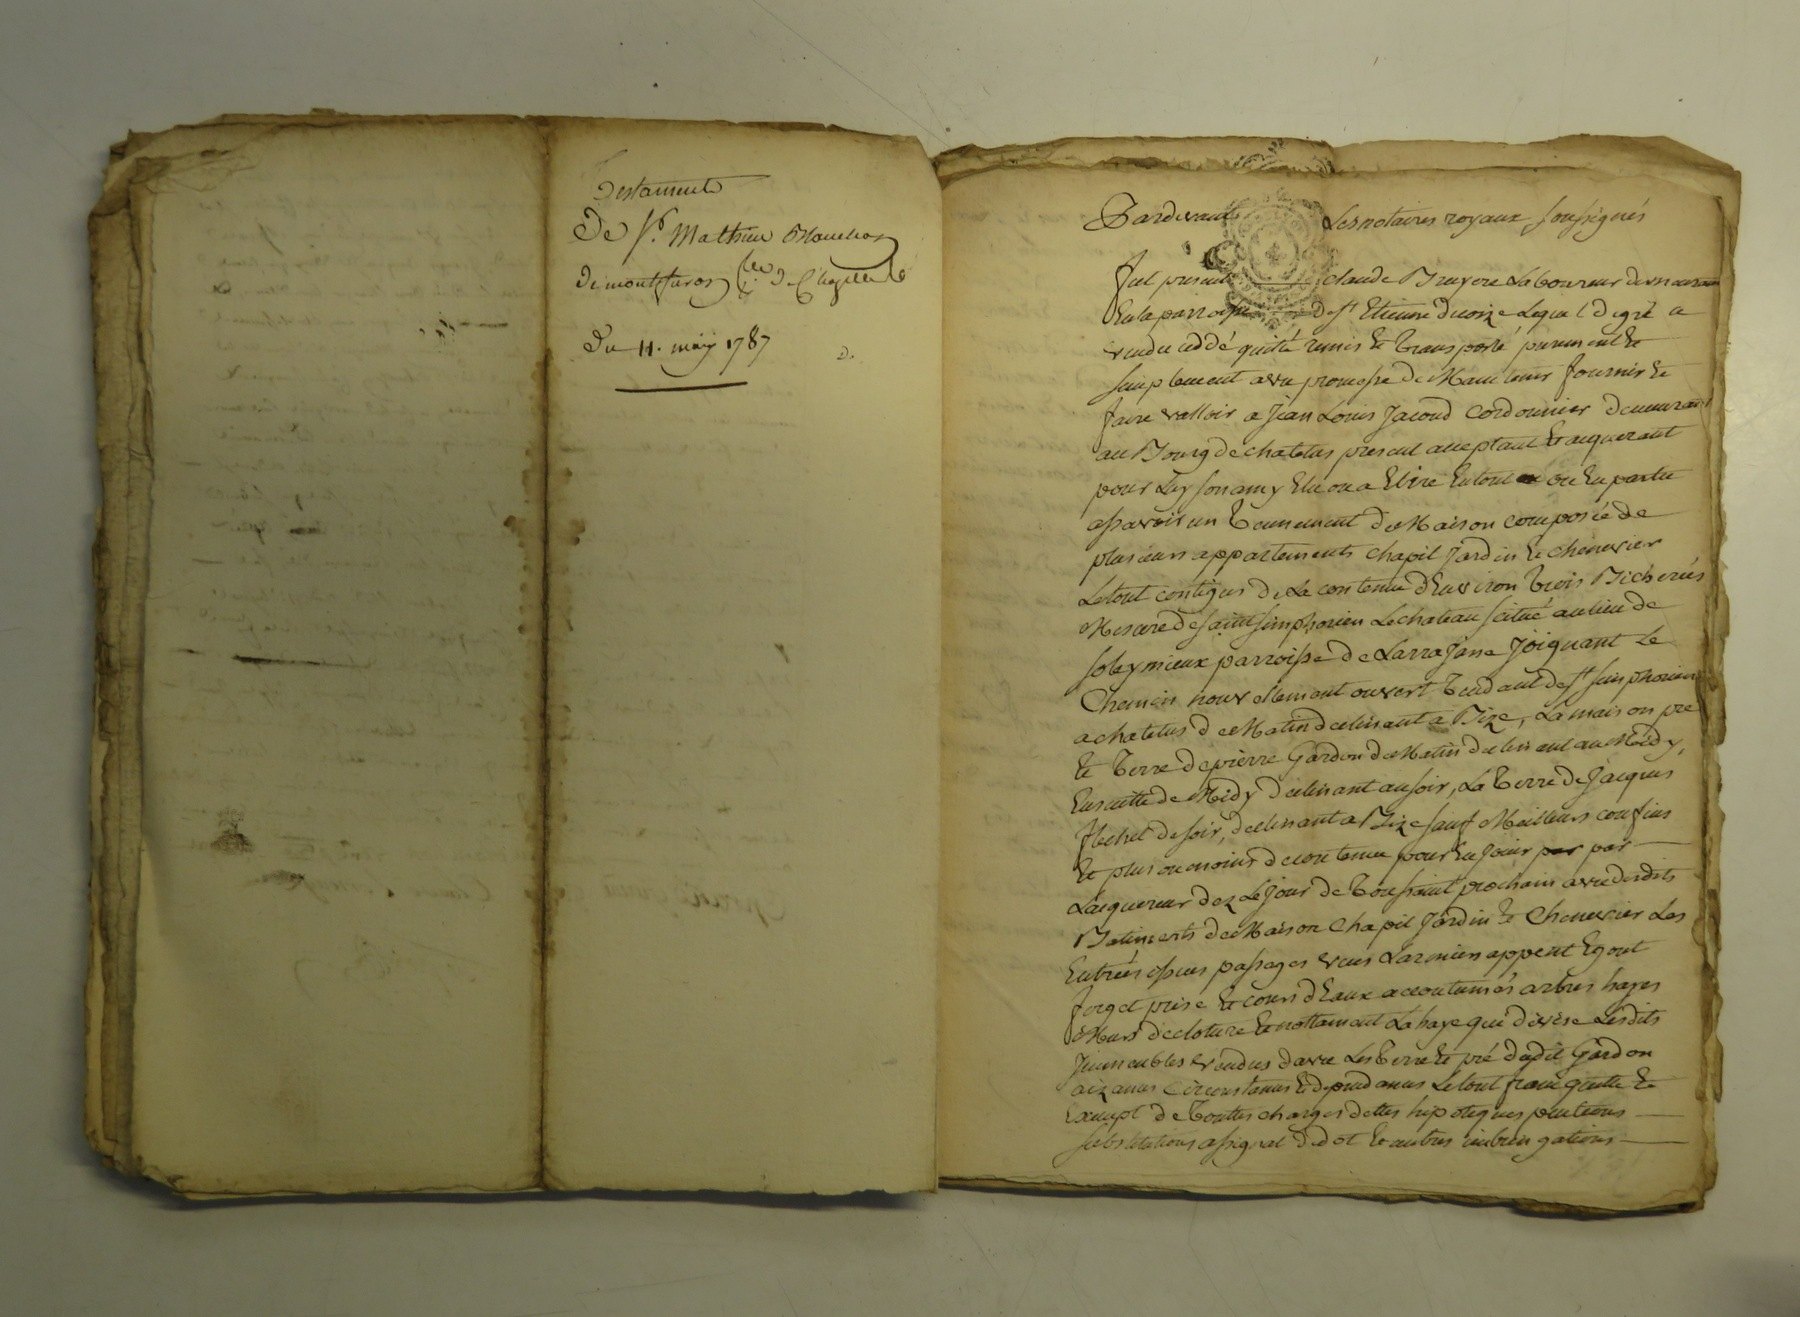 Testament
De Sr. Mathieu
de montfuron
Du 11. may 1787
D.
Pardevant Les notaires royaux soussignés
fut present claude Bruyere Laboureur demeurant
En la parroisse de St Etienne Lequel De gré a
vendu ceddé quitté remis et transporté purement et
simplement avec promesse de Maintenir fournir et
faire valloir a jean Louis Jacoud cordonnier demeurant
au Bourg de chatelus present acceptant et acquerant
pour Luy son amy Elu ou a Elire En tout ou En partie
assavoir un Tennement de Maison composée de
plusieurs appartements chapit Jardin et chenevier
Le tout contigus de La contenue d'Environ trois Bicherées
Mesure de saint simphorien Le chateau scitué au lieu de
soleymieux parroisse de Larrajasse joignant Le
Chemin nouvellement ouvert tendant de St simphorien
a chatelus de Matin declinant a Bize, La maison pré
et terre de pierre Gardon de Matin declinant au Midy,
Ensuitte de Midy declinant au soir, La terre de Jacques
flechet de soir, declinant a Bize sauf Meilleurs confins
et plus ou moins de contenue pour En jouir par par
Lacquereur dez Le jour de toussaint prochain avec desdits
Batiments de Maison chapit Jardin et chenevier Les
Entrées issues passages vues Larmiers appent Egout
forget prise et cours d'Eaux accoutumés arbres hayes
Murs de cloture et nottament La haye qui divise Lesdits
Immeubles vendus davec Les terre et pré dudit Gardon
aizances circonstances et dependances Le tout franc quitte et
Exempt de touttes charges dettes hipoteques pentions
substitutions assignat de dot et autres